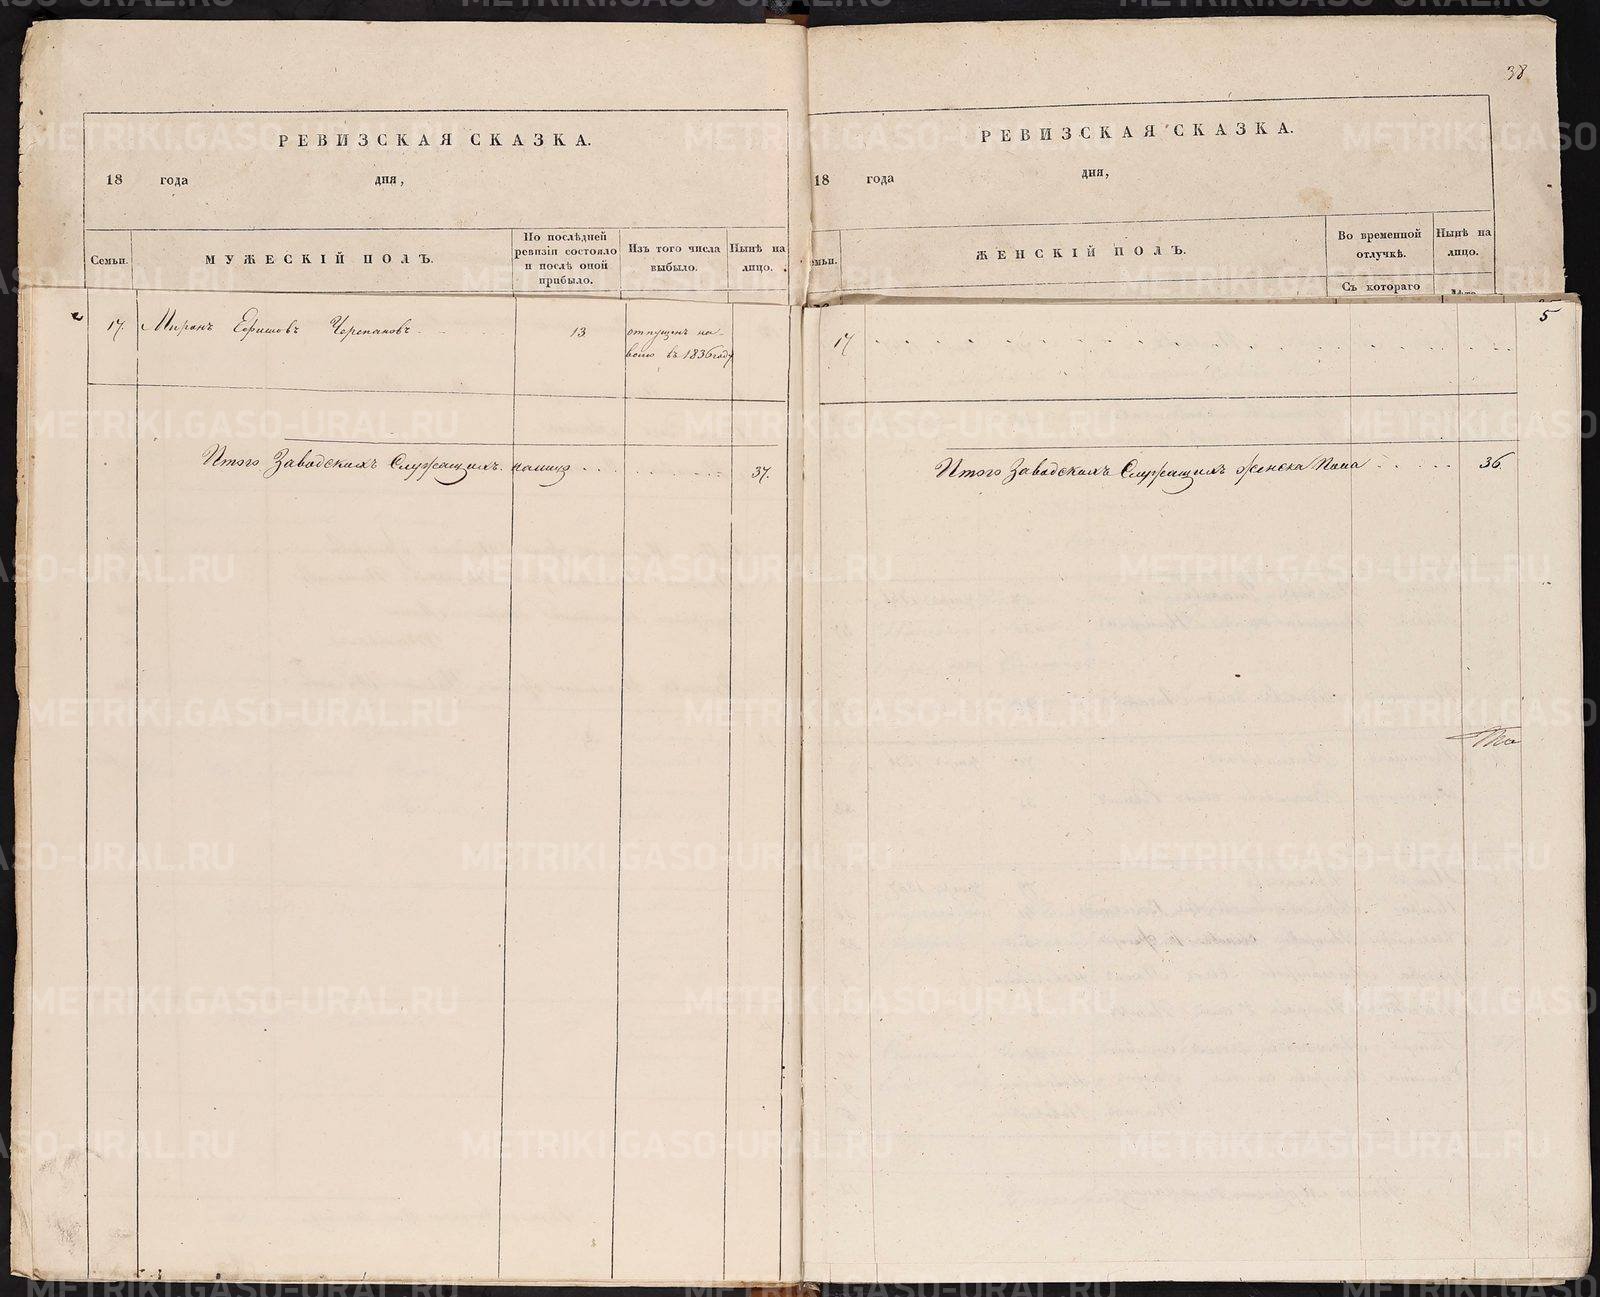 38
РЕВИЗСКАЯ СКАЗКА.
18 года дня,
Семьи.
МУЖЕСКІЙ ПОЛЪ.
По послѣдней ревизіи состояло и послѣ оной прибыло.
Изъ того числа выбыло.
Нынѣ на лицо.
17. Миронъ Ефимовъ Черепановъ 13 отпущенъ на
волю въ 1836 году
Итого Заводскихъ Служащихъ налицо 37.
РЕВИЗСКАЯ СКАЗКА.
18 года дня,
ЖЕНСКІЙ ПОЛЪ.
Во временной отлучкѣ.
Съ котораго
Нынѣ на лицо.
5
17
Итого Заводскихъ Служащихъ женска Пола 36.
METRIKI.GASO-URAL.RU